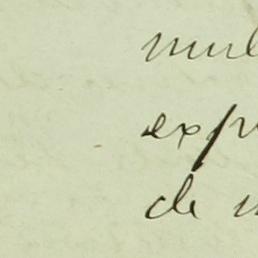 mul
exp
de